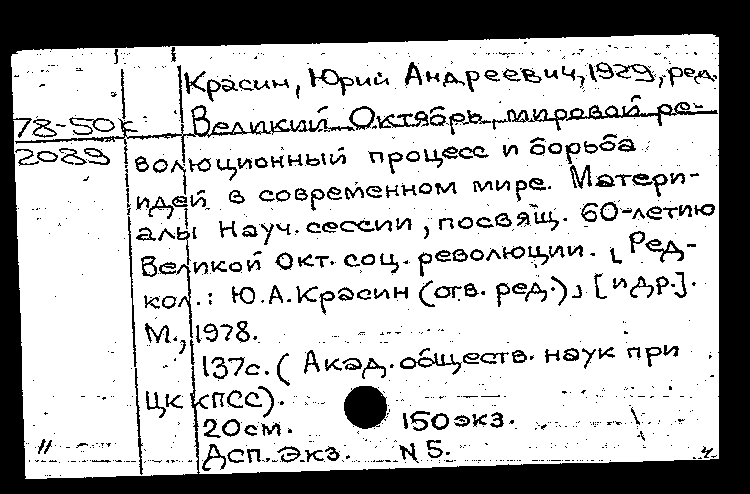 Красин, Юрий Андреевич, 1929, ред.
78-50к Великий Октябрь, мировой ре-
2089 волюционный процесс и борьба
идей в современном мире. Матери-
алы Науч. сессии, посвящ. 60-летию
Великой Окт. соц. революции. [Ред-
кол.: Ю.А.Красин (отв. ред.)] [и др.].
М., 1978.
137с. (Акад. обществ. наук при
ЦК КПСС).
20см. 150экз.
11 Дсп. Экз. N 5. 4